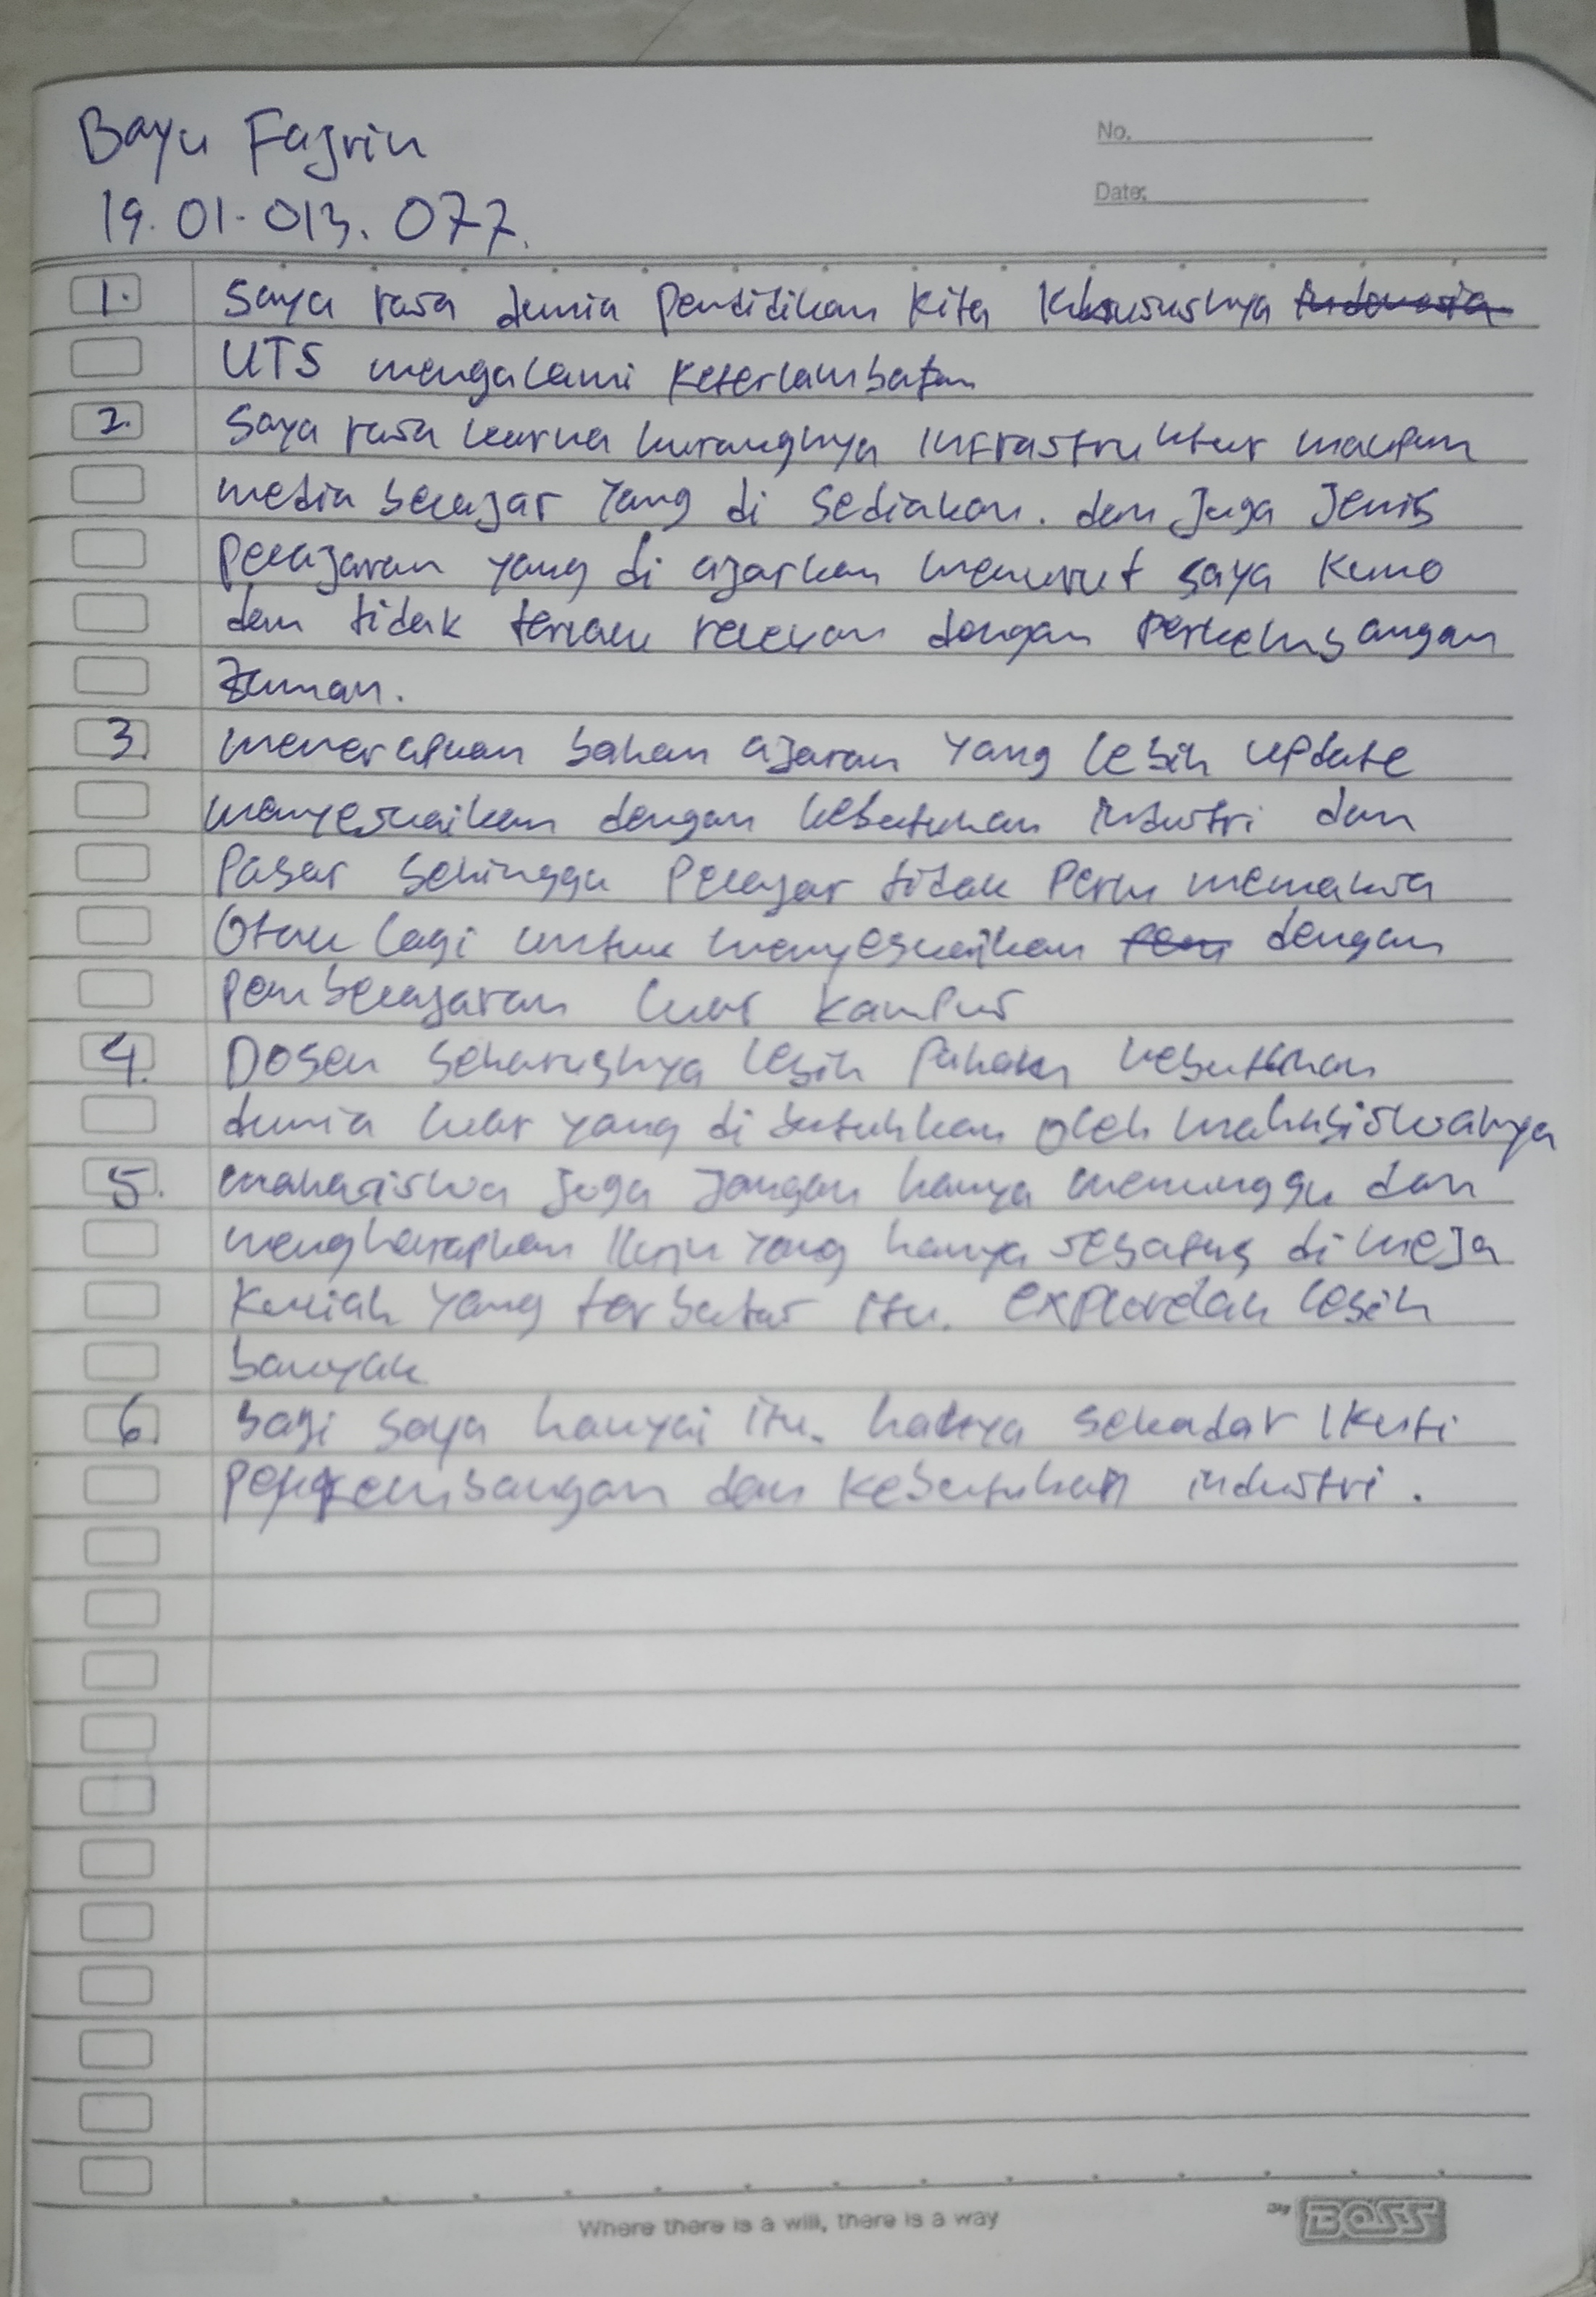 Bayu Fajrin
19.01.013.077.
No.
Date:
1. Saya rasa dunia pendidikan kita khususnya Indonesia
UTS mengalami keterlambatan
2. Saya rasa karna kurangnya infrastruktur maupun
media belajar yang di sediakan. dan juga jenis
pelajaran yang di ajarkan menurut saya kuno
dan tidak terlalu relevan dengan perkembangan
zaman.
3. menerapkan bahan ajaran yang lebih update
menyesuaikan dengan kebutuhan industri dan
pasar sehingga pelajar tidak perlu memaksa
otak lagi untuk menyesuaikan dengan
pembelajaran luar kampus
4. Dosen seharusnya lebih paham kebutuhan
dunia luar yang di butuhkan oleh mahasiswanya
5. mahasiswa juga jangan hanya menunggu dan
mengharapkan ilmu yang hanya sebatas di meja
kuliah yang terbatas itu. explorelah lebih
banyak
6. bagi saya hanya itu. hanya sekadar ikuti
perkembangan dan kebutuhan industri.
Where there is a will, there is a way
By BOSS